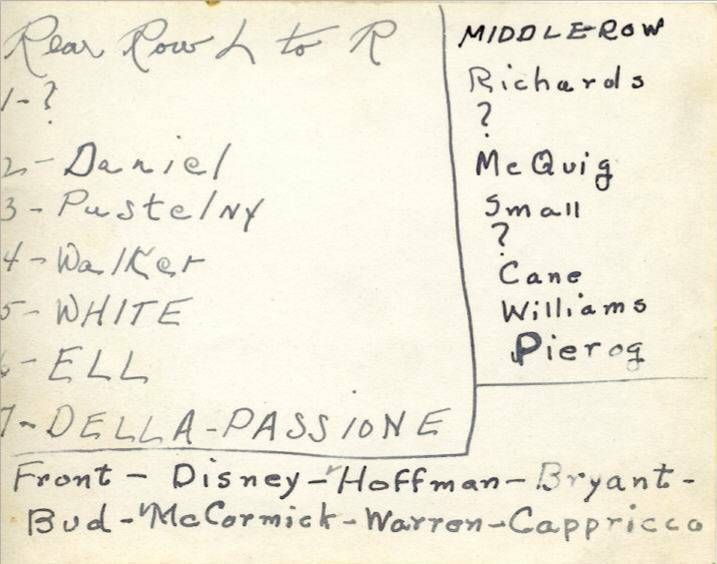 Rear Row L to R
1-?
2-Daniel
3-Pustelny
4-Walker
5-WHITE
6-ELL
7-DELLA-PASSIONE
MIDDLE-ROW
Richards
?
McQuig
Small
?
Cane
Williams
Pierog
Front - Disney-"Hoffman-Bryant-
Bud-"McCormick-Warren-Cappricco